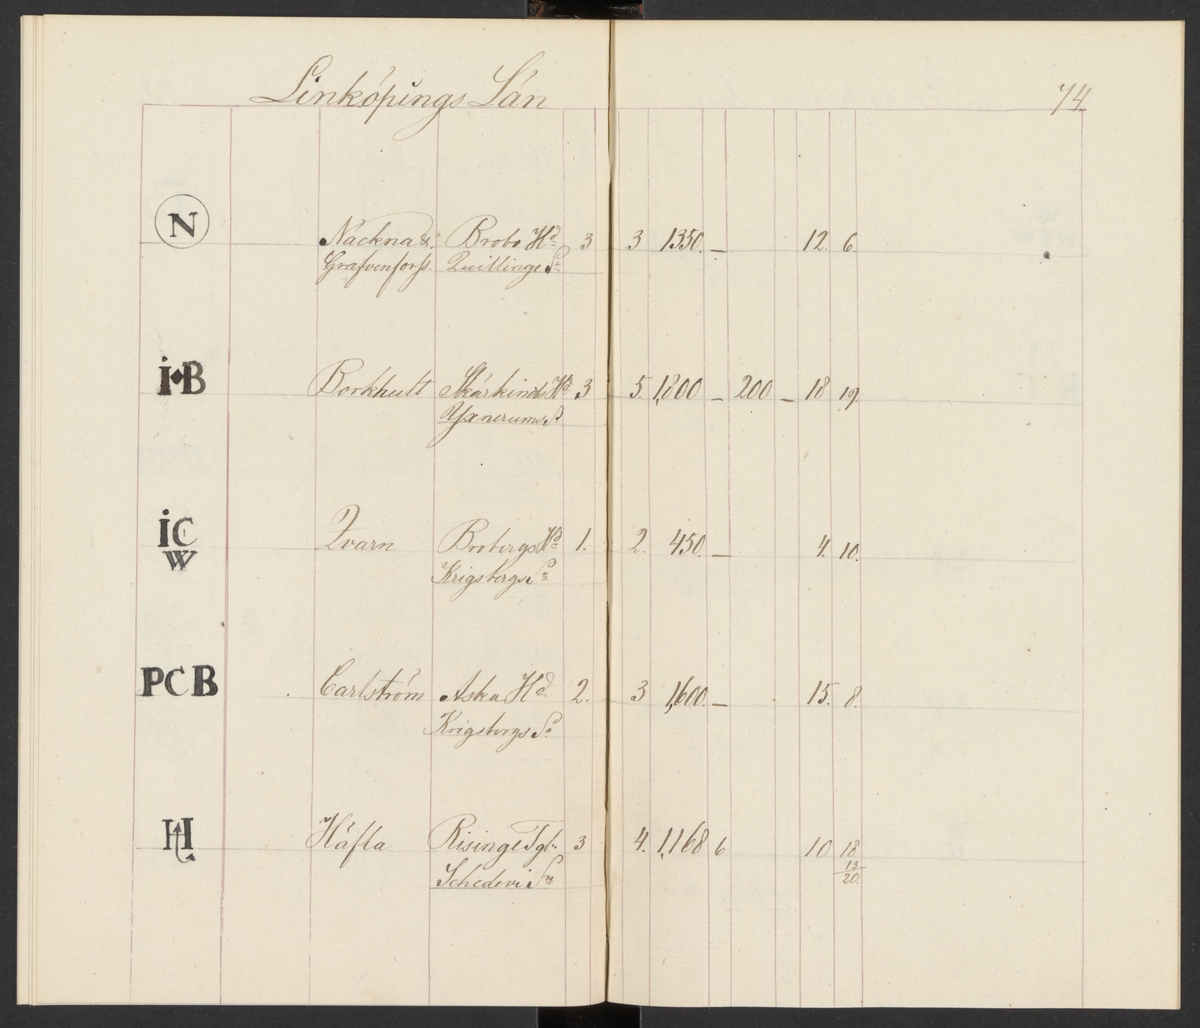 Linköpings Län
74
N Näckna & Brobo Hd 3 3 1350. — 12. 6.
Grafvenforss. Quillinge Sn
i♦B Borkhult Skärkinds Hd 3 5. 1,800 — 200 — 18 19.
Yxnerums Sn
iC Qvarn Brobergs Hd 1. 2. 450. — 4. 10.
W Krigsbergs Sn
PCB Carlström Aska Hd 2. 3 1,600. — 15. 8.
Krigsbergs Sn
H Häfla Risinge Tgl. 3 4. 1,168 6 10 18 13/20.
Schedevi Sn